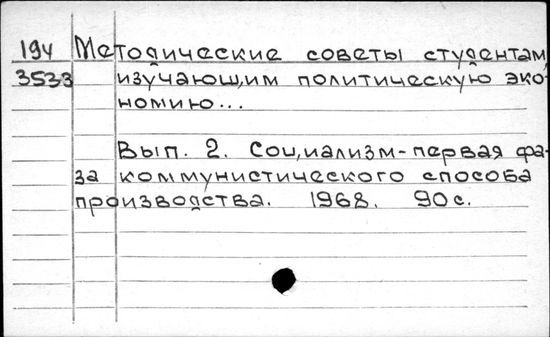 194 Методические советы студентам,
3533 изучающим политическую эко-
номию...
Вып. 2. Социализм-первая фа-
за коммунистического способа
производства. 1968. 90 с.